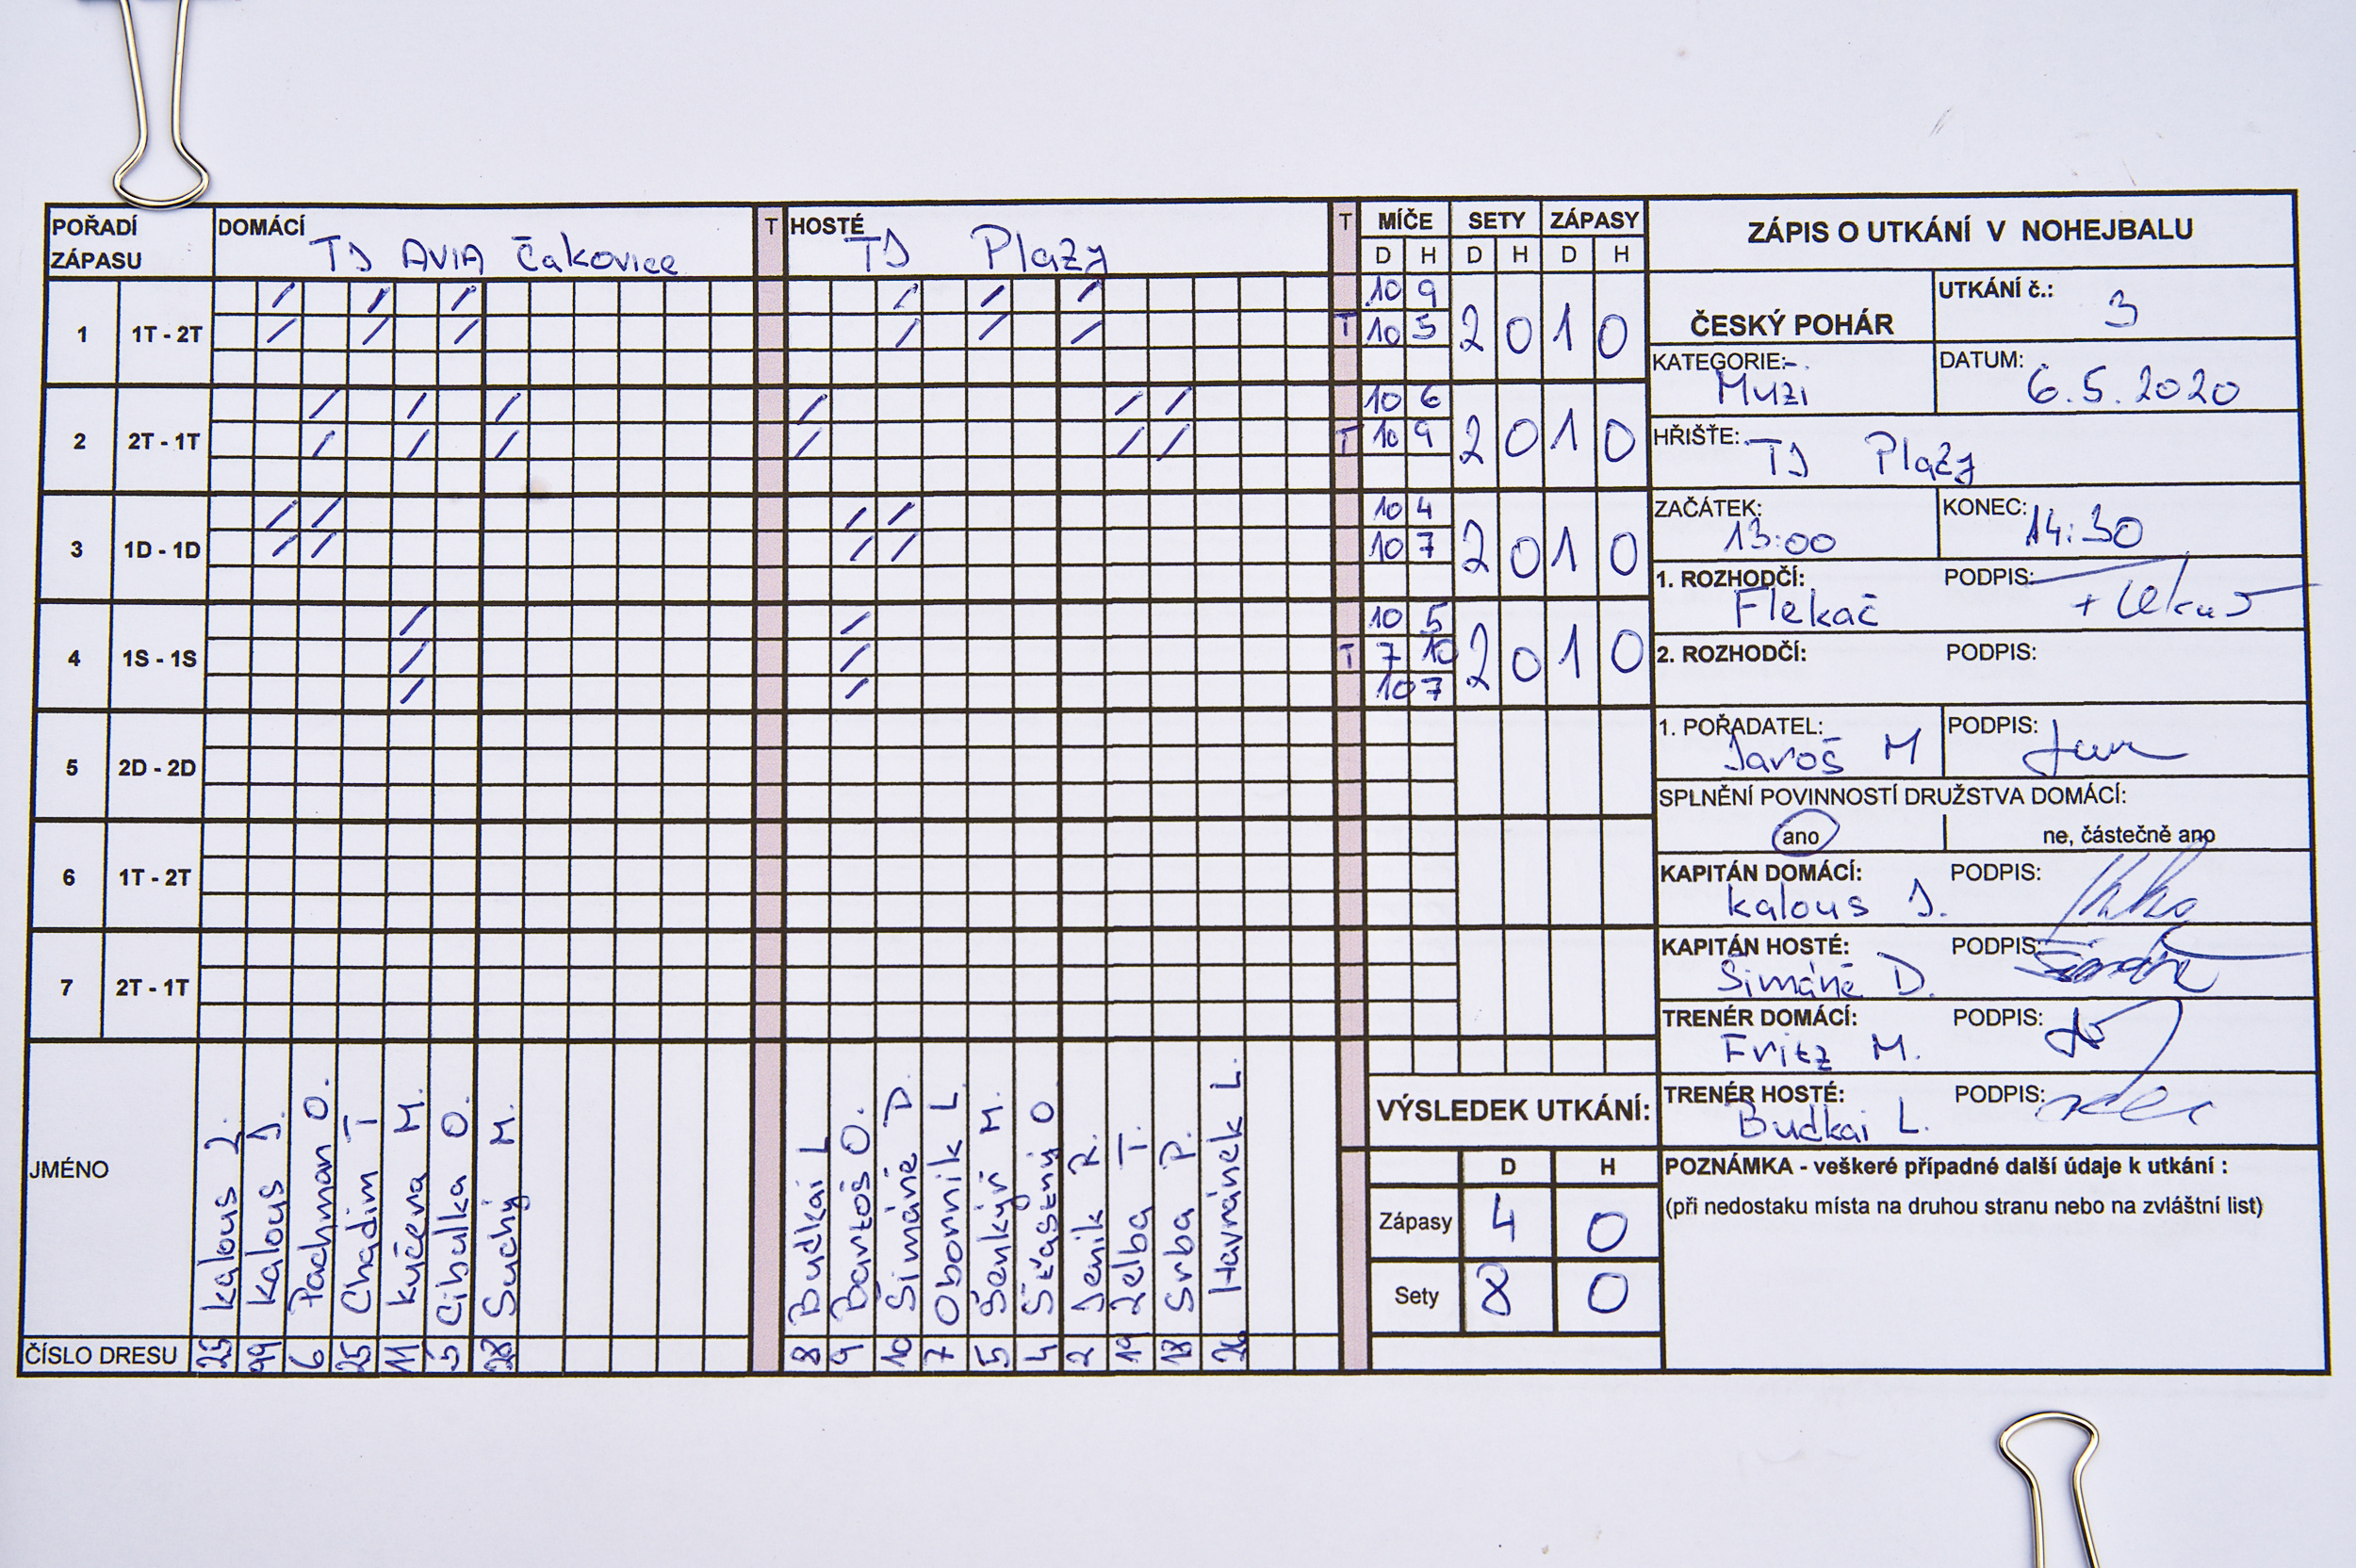 POŘADÍ ZÁPASU DOMÁCÍ TJ AVIA Čakovice T HOSTÉ TJ Plazy T MÍČE SETY ZÁPASY
D H D H D H
1 1T - 2T 10 9 2 0 1 0
T 10 5
2 2T - 1T 10 6 2 0 1 0
T 10 9
3 1D - 1D 10 4 2 0 1 0
10 7
4 1S - 1S 10 5 2 0 1 0
T 7 10
10 7
5 2D - 2D
6 1T - 2T
7 2T - 1T
JMÉNO
Kalous J.
Pachman O.
Chadim T
Kučera M.
Cibulka O.
Suchý M.
Budkai L
Bartoš O.
Šimáně D.
Obornik L
Šenkýř M.
Šťastný O
Jenik R.
Zelba T.
Srba P.
Havránek L.
ČÍSLO DRESU 99 6 25 11 5 28 8 9 10 7 5 4 2 19 18
ZÁPIS O UTKÁNÍ V NOHEJBALU
ČESKÝ POHÁR
UTKÁNÍ č.: 3
KATEGORIE: Muži
DATUM: 6.5.2020
HŘIŠTĚ: TJ Plazy
ZAČÁTEK: 13:00
KONEC: 14:30
1. ROZHODČÍ: Flekač
PODPIS:
2. ROZHODČÍ:
PODPIS:
1. POŘADATEL: Jaroš M
PODPIS:
SPLNĚNÍ POVINNOSTÍ DRUŽSTVA DOMÁCÍ:
ano ne, částečně ano
KAPITÁN DOMÁCÍ: Kalous J.
PODPIS:
KAPITÁN HOSTÉ: Šimáně D.
PODPIS:
TRENÉR DOMÁCÍ: Fritz M.
PODPIS:
TRENÉR HOSTÉ: Budkai L.
PODPIS:
VÝSLEDEK UTKÁNÍ:
D H
Zápasy 4 0
Sety 8 0
POZNÁMKA - veškeré případné další údaje k utkání :
(při nedostaku místa na druhou stranu nebo na zvláštní list)